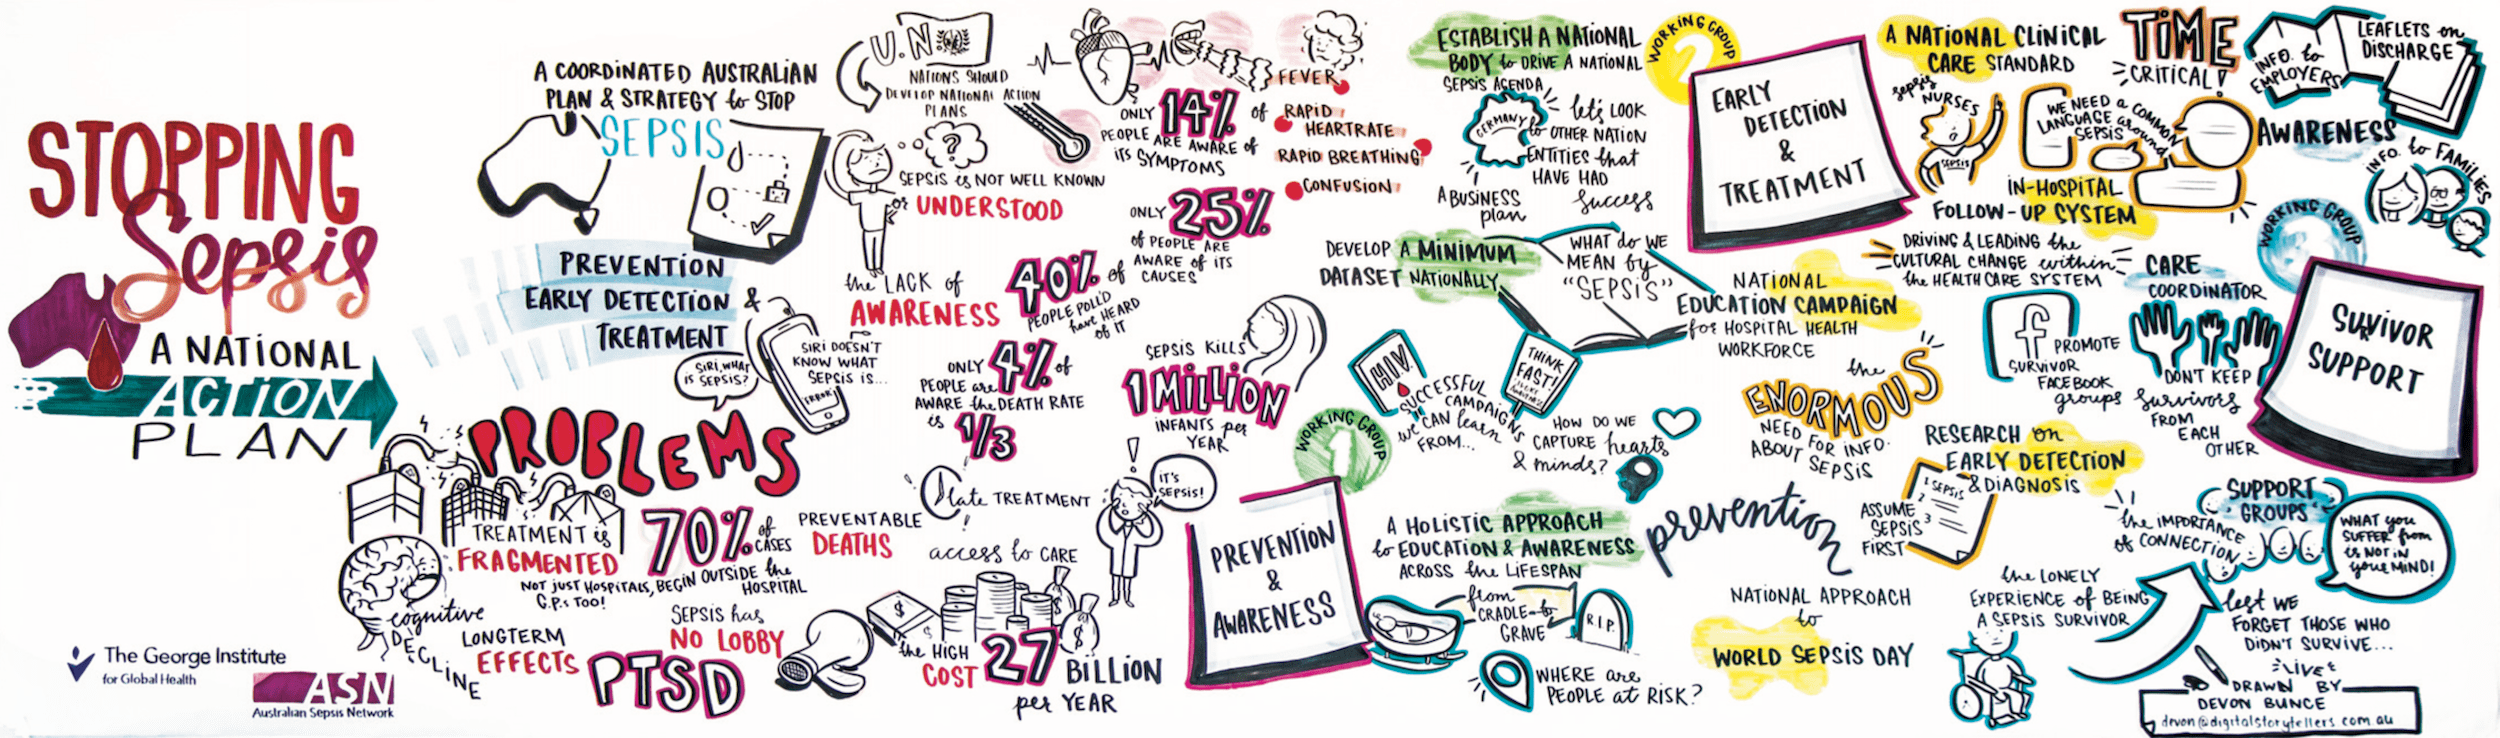 STOPPING
Sepsis
A NATIONAL
ACTION
PLAN
The George Institute
for Global Health
ASN
Australian Sepsis Network
A COORDINATED AUSTRALIAN
PLAN & STRATEGY to STOP
SEPSIS
PREVENTION
EARLY DETECTION &
TREATMENT
U.N
NATIONS SHOULD
DEVELOP NATIONAL ACTION
PLANS
?
SEPSIS is NOT WELL KNOWN
or UNDERSTOOD
the LACK of
AWARENESS
SIRI, WHAT
IS SEPSIS?
SIRI DOESN'T
KNOW WHAT
SEPSIS IS...
ERROR
ONLY 14% of
PEOPLE ARE AWARE of
ITS SYMPTOMS
FEVER
RAPID
HEARTRATE
RAPID BREATHING
CONFUSION
ONLY 25%
of PEOPLE ARE
AWARE of ITS
CAUSES
40% of
PEOPLE POLL'D
have HEARD
of IT
ONLY 4% of
PEOPLE are
AWARE the DEATH RATE
is 1/3
SEPSIS KILLS
1 MILLION
INFANTS per
YEAR
PROBLEMS
TREATMENT is
FRAGMENTED
NOT JUST HOSPITALS,
G.P.s TOO!
70% of
CASES
BEGIN OUTSIDE the
HOSPITAL
PREVENTABLE
DEATHS
late TREATMENT
!
access to CARE
!
IT'S
SEPSIS!
cognitive
DECLINE
LONGTERM
EFFECTS
PTSD
SEPSIS has
NO LOBBY
$
$
$
the HIGH
COST 27 BILLION
per YEAR
WORKING GROUP
1
PREVENTION
&
AWARENESS
ESTABLISH A NATIONAL
BODY to DRIVE A NATIONAL
SEPSIS AGENDA
GERMANY
let's LOOK
to OTHER NATION
ENTITIES that
HAVE HAD
success
A BUSINESS
plan
DEVELOP A MINIMUM
DATASET NATIONALLY
WHAT do WE
MEAN by
"SEPSIS"
HIV
THINK
FAST!
SUCCESSFUL
CAMPAIGNS
we CAN learn
FROM...
HOW DO WE
CAPTURE hearts
& minds?
A HOLISTIC APPROACH
to EDUCATION & AWARENESS
ACROSS the LIFESPAN
from
CRADLE to
GRAVE
R.I.P.
WHERE are
PEOPLE at RISK?
WORKING GROUP
2
EARLY
DETECTION
&
TREATMENT
A NATIONAL CLINICAL
CARE STANDARD
TIME
CRITICAL!
sepsis
NURSES
SEPSIS
WE NEED a COMMON
LANGUAGE around
SEPSIS
IN-HOSPITAL
FOLLOW-UP SYSTEM
DRIVING & LEADING the
CULTURAL CHANGE within
the HEALTH CARE SYSTEM
NATIONAL
EDUCATION CAMPAIGN
for HOSPITAL HEALTH
WORKFORCE
the
ENORMOUS
NEED FOR INFO.
ABOUT SEPSIS
RESEARCH on
EARLY DETECTION
& DIAGNOSIS
ASSUME
SEPSIS
FIRST
1 SEPSIS
2
3
prevention
NATIONAL APPROACH
to
WORLD SEPSIS DAY
WORKING GROUP
SUVIVOR
R
SUPPORT
INFO. to
EMPLOYERS
LEAFLETS on
DISCHARGE
AWARENESS
INFO. to FAMILIES
CARE
COORDINATOR
f
PROMOTE
SURVIVOR
FACEBOOK
groups
DON'T KEEP
survivors
FROM
EACH
OTHER
SUPPORT
GROUPS
the IMPORTANCE
of CONNECTION
WHAT you
SUFFER from
is NOT in
your MIND!
the LONELY
EXPERIENCE of BEING
A SEPSIS SURVIVOR
lest WE
FORGET THOSE WHO
DIDN'T SURVIVE...
LIVE
DRAWN BY
DEVON BUNCE
devon@digitalstorytellers.com.au